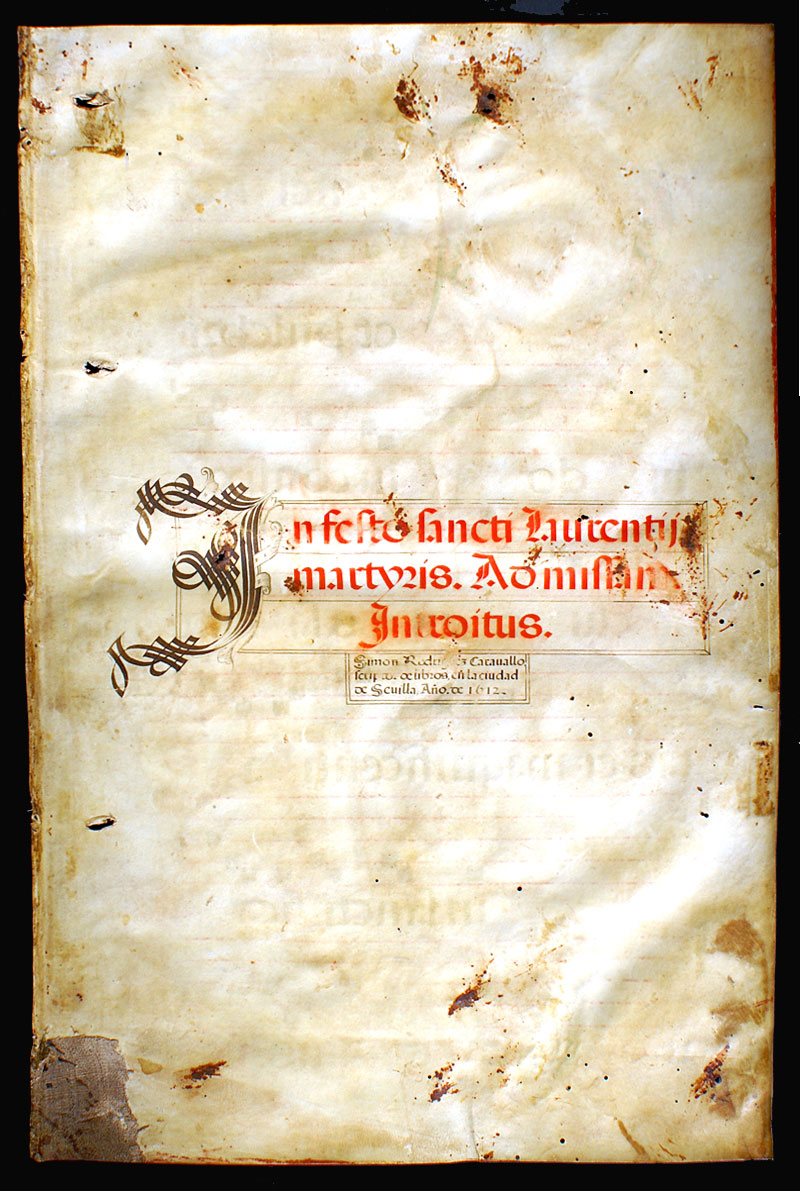 In festo sancti Laurentij
martyris. Ad missam
Introitus.
Simon Rodriguez Carauallo
de libros, en la ciudad
de Sevilla, Año. de 1612.